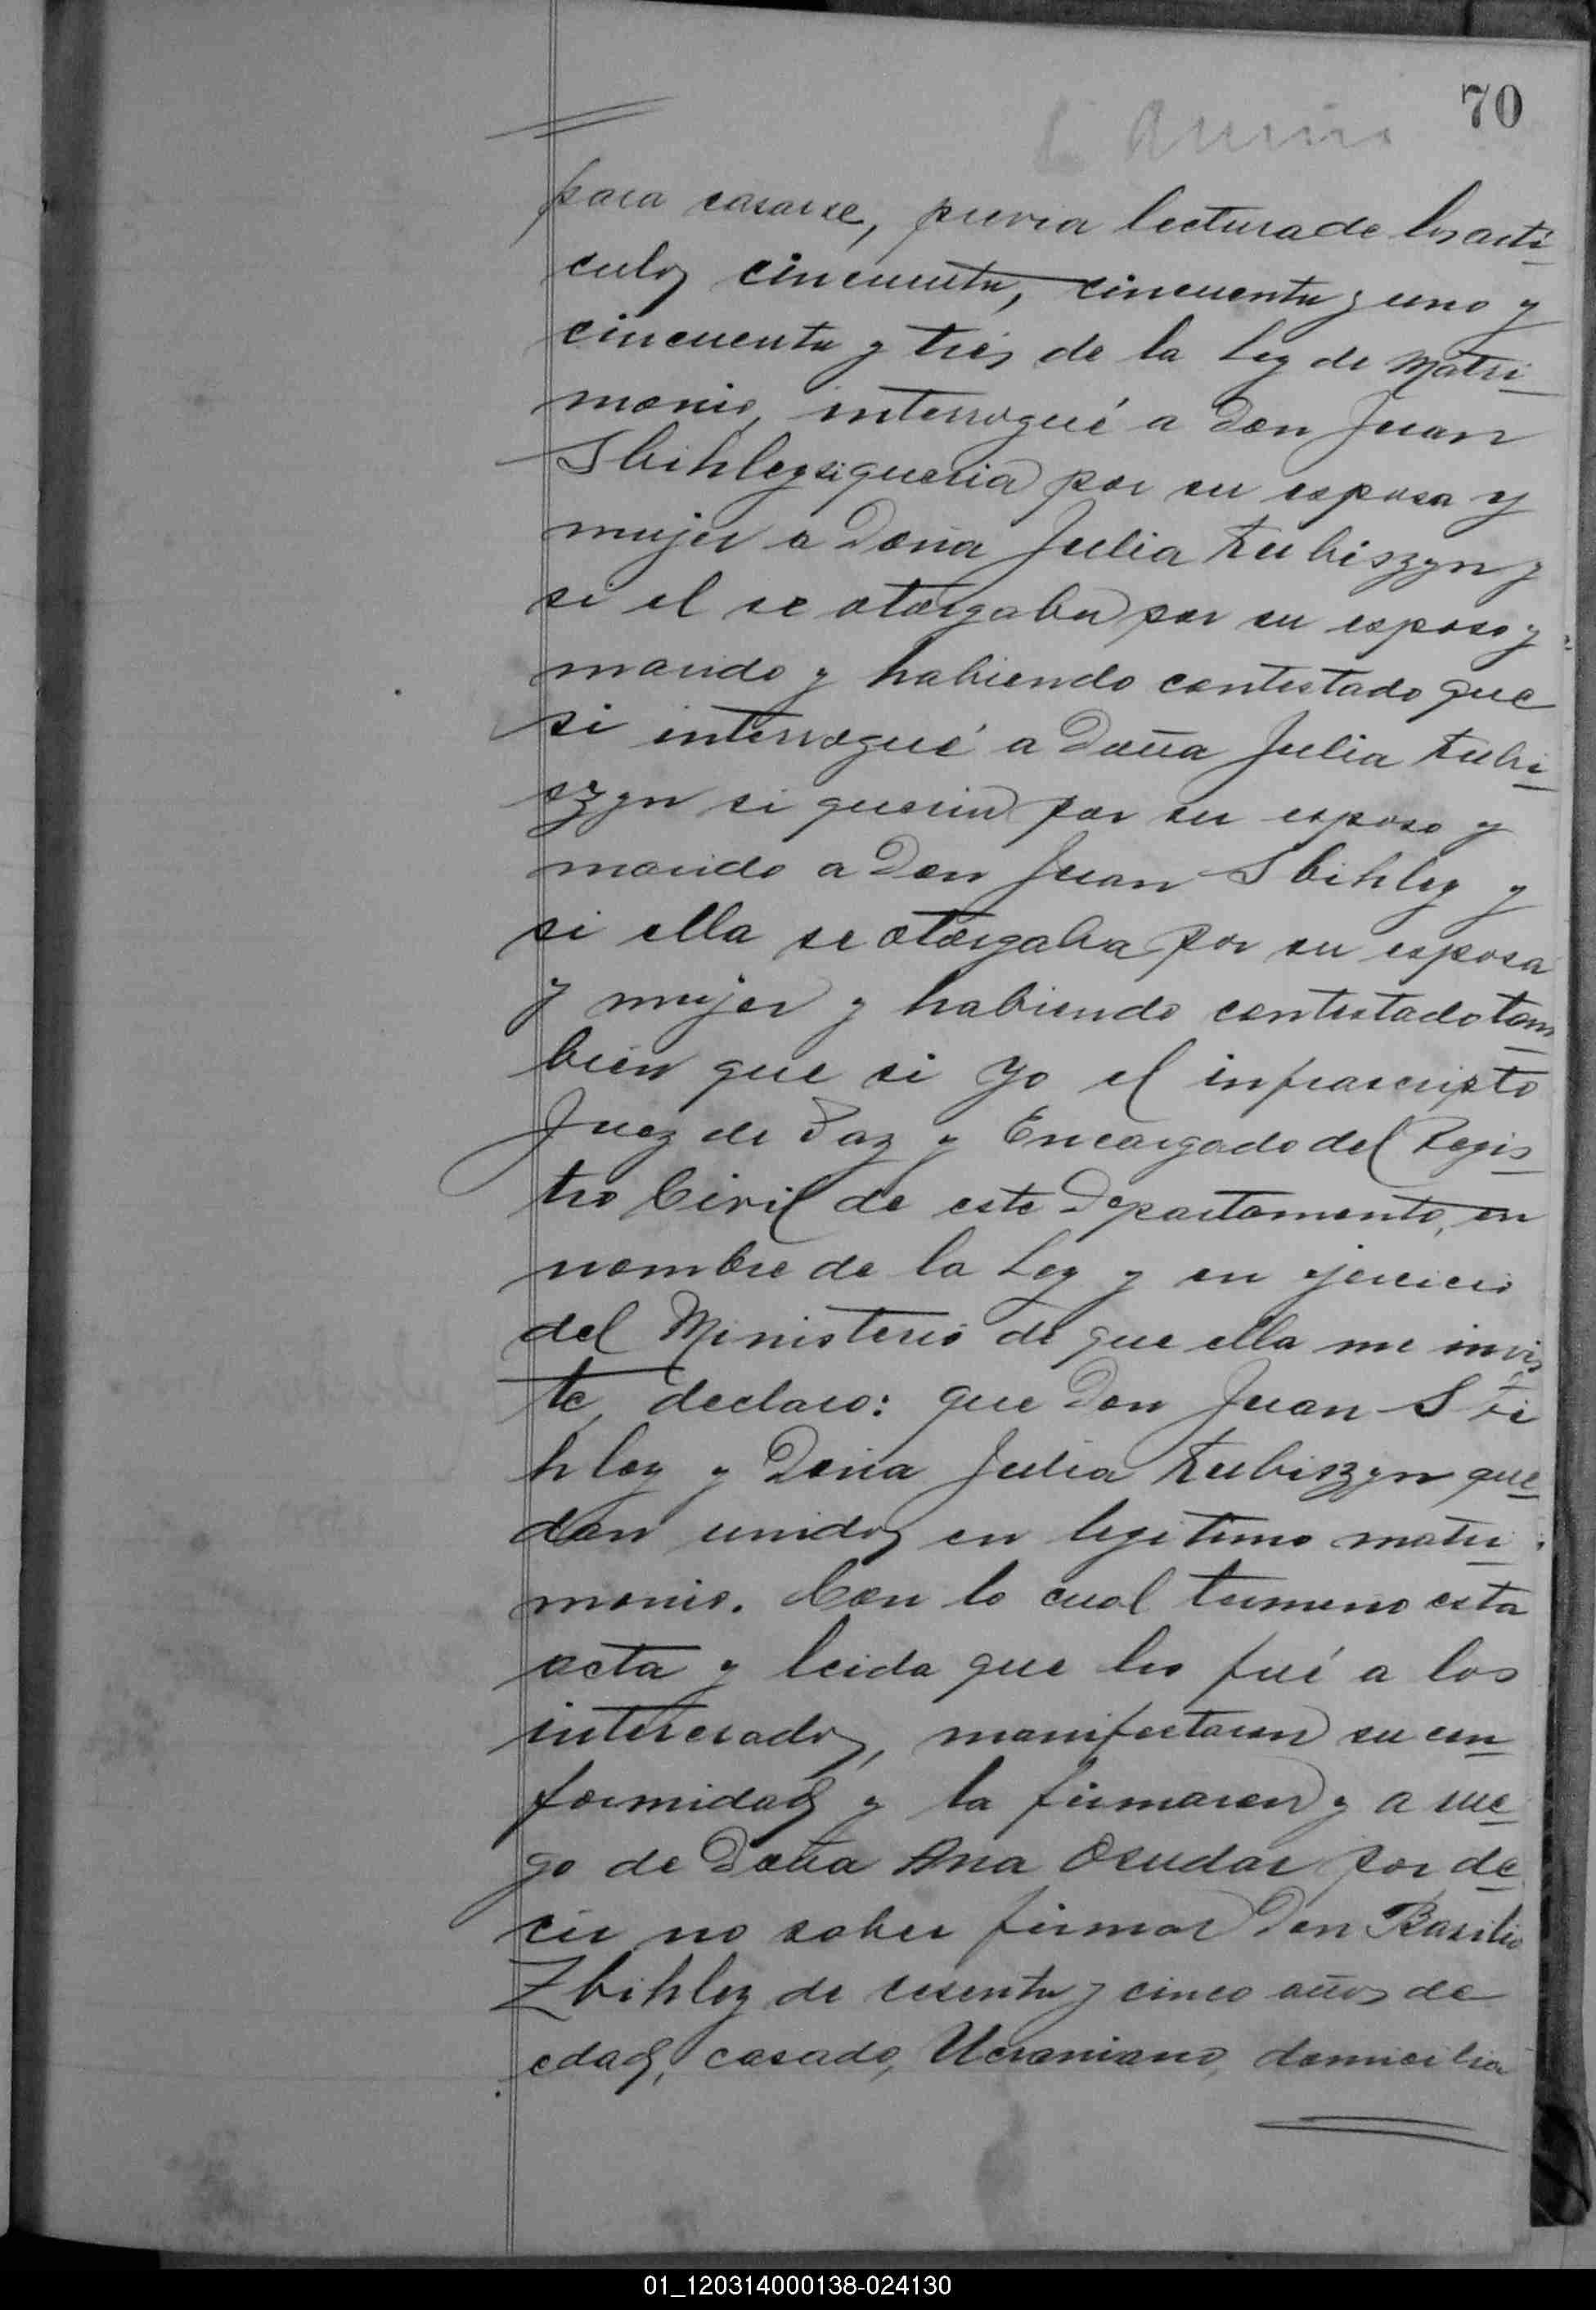 70
para casarse, previa lectura de los artí-
culos cincuenta, cincuenta y uno y
cincuenta y tres de la Ley de Matri-
monio, interrogué a Don Juan
Sbihley si queria por su esposa y
mujer a Doña Julia Kubiszyn y
si el se otorgaba por su esposo y
marido y habiendo contestado que
si interrogué a Doña Julia Kubi-
szyn si queria por su esposo y
marido a Don Juan Sbihley y
si ella se otorgaba por su esposa
y mujer y habiendo contestado tam-
bien que si Yo el infrascripto
Juez de Paz y Encargado del Regis-
tro Civil de este Departamento, en
nombre de la Ley y en ejercicio
del Ministerio de que ella me invis-
te, declaro: que Don Juan Sbi
hley y Doña Julia Kubiszyn que-
dan unidos en legitimo matri-
monio. Con lo cual termino esta
acta y leida que les fué a los
interesados, manifestaron su con-
formidad y la firmaron y a rue-
go de Doña Ana Osudar por de-
cir no saber firmar Don Basilio
Zbihley de sesenta y cinco años de
edad, casado, Ucraniano, domicilia
01_120314000138-024130